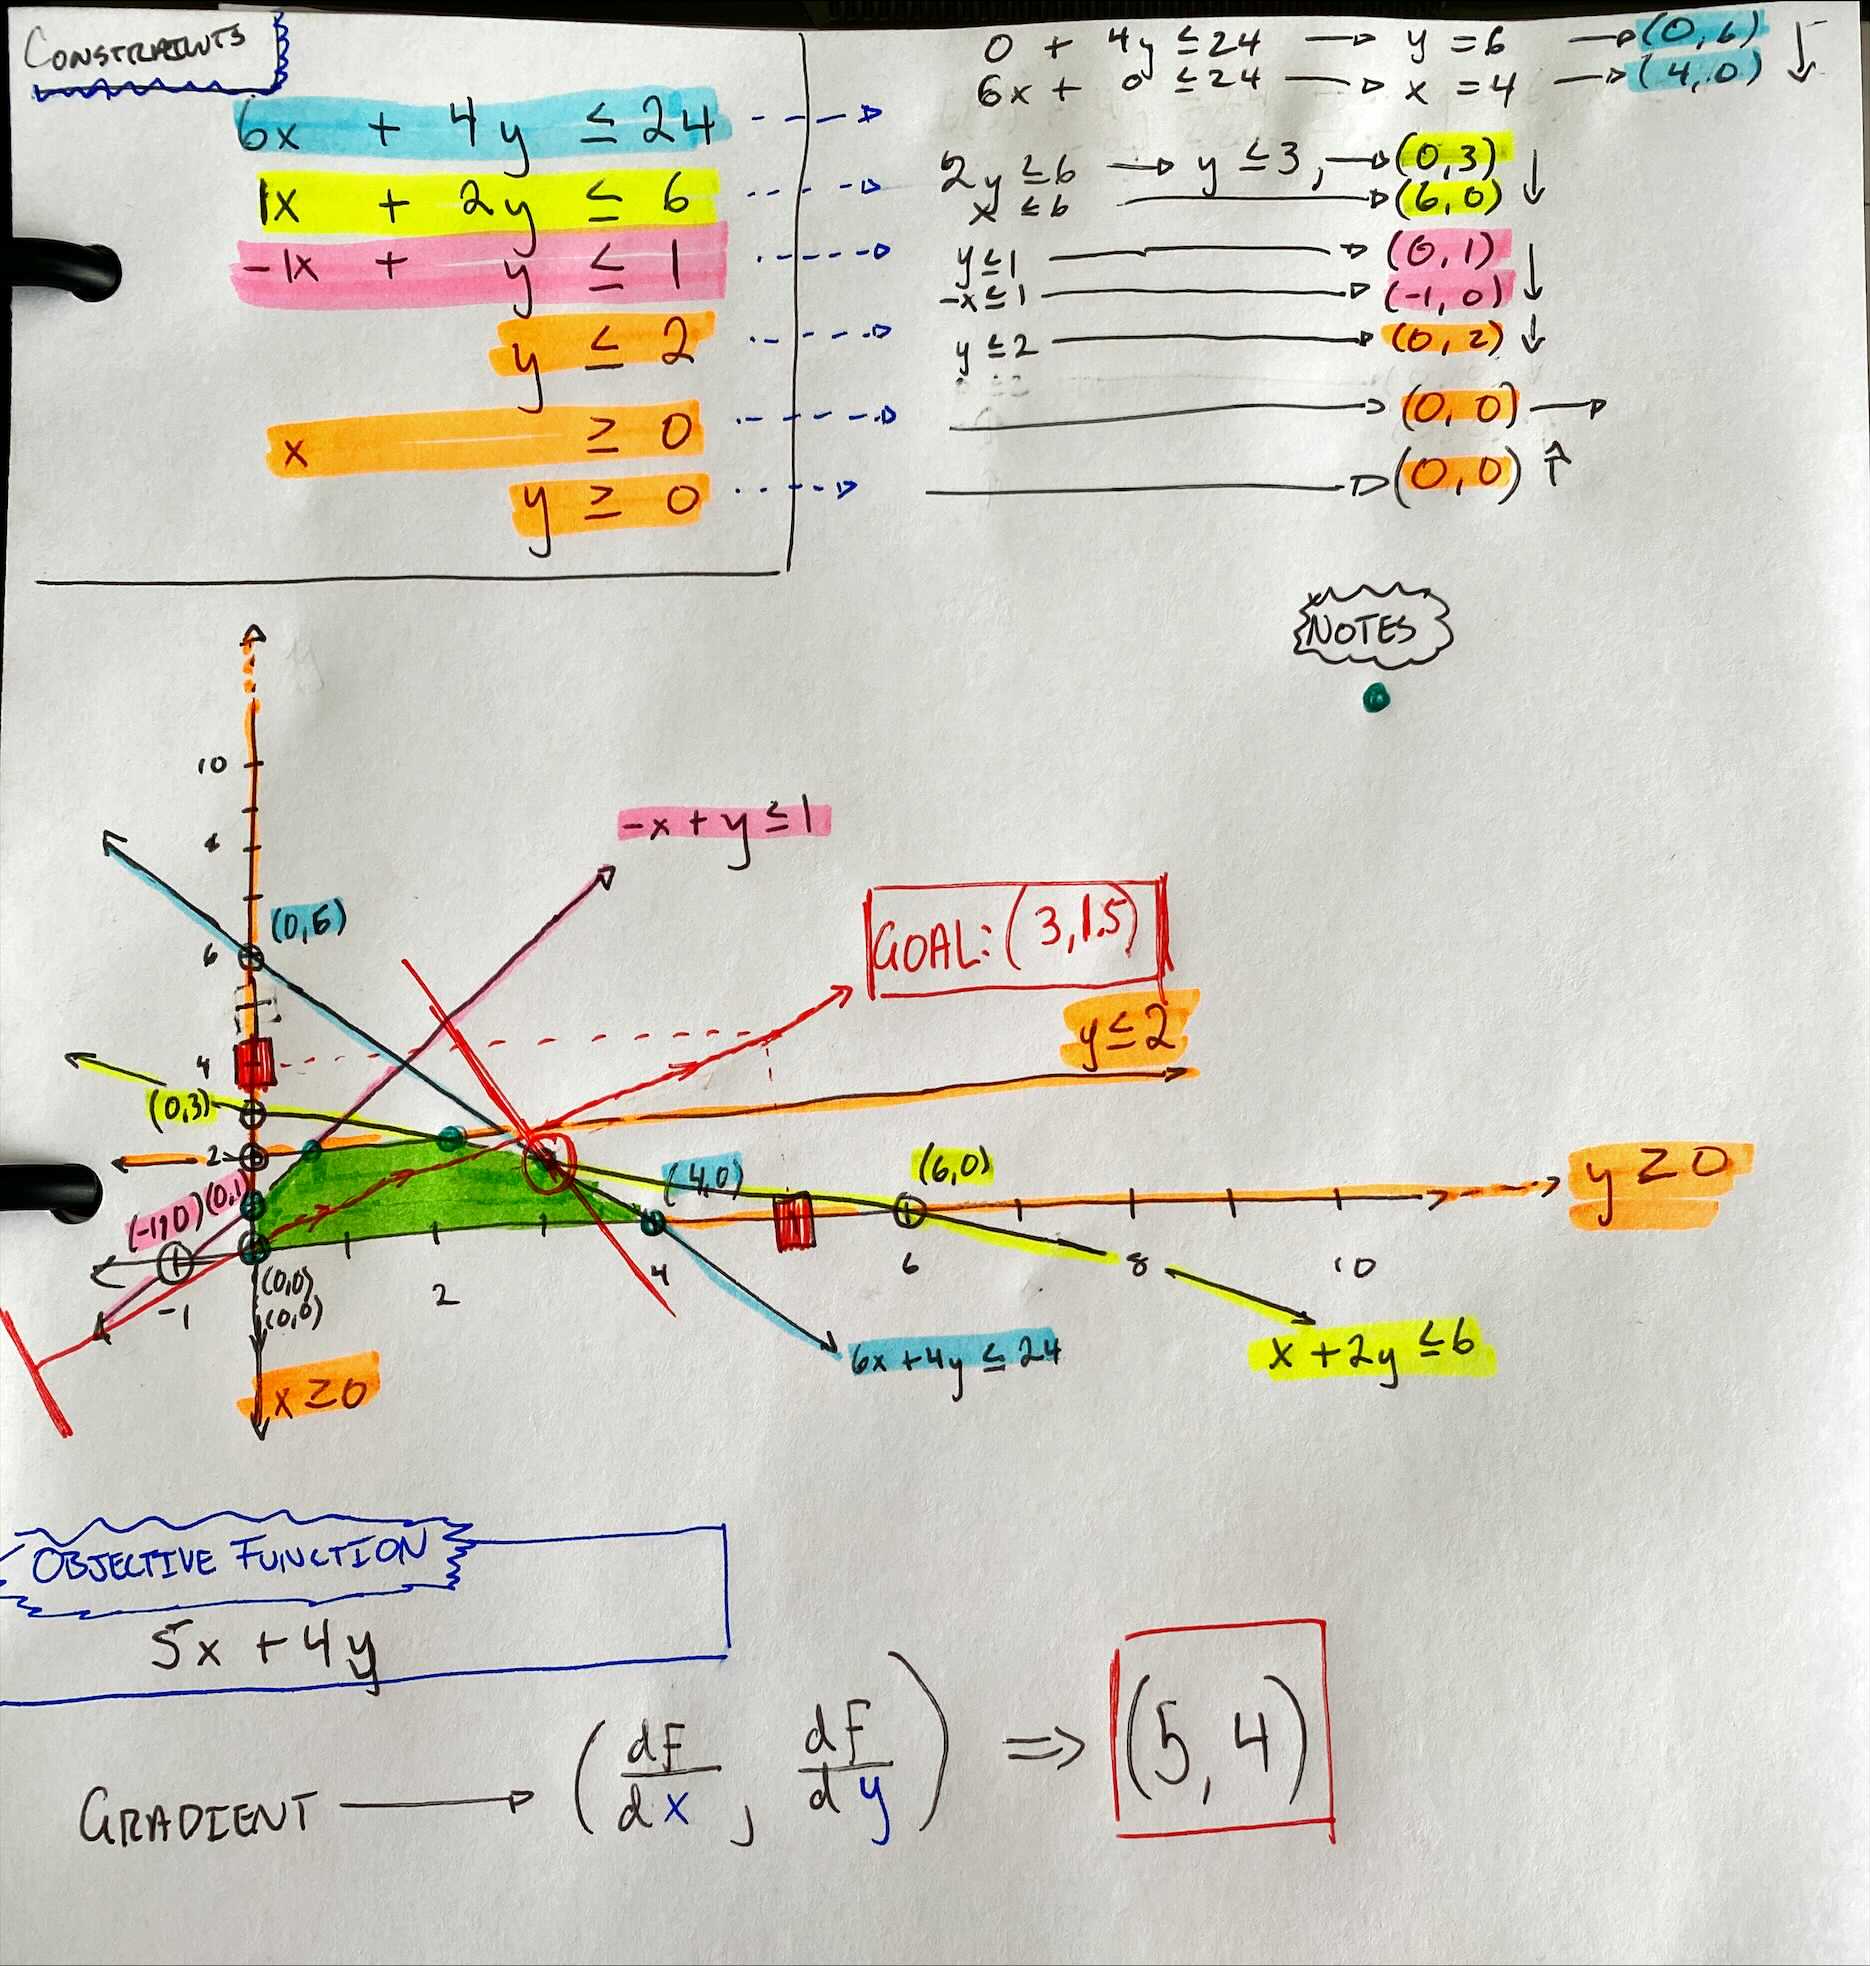 CONSTRAINTS
6x + 4y ≤ 24
1x + 2y ≤ 6
-1x + y ≤ 1
y ≤ 2
x ≥ 0
y ≥ 0
0 + 4y ≤ 24 → y = 6 → (0,6) ↓
6x + 0 ≤ 24 → x = 4 → (4,0)
2y ≤ 6 → y ≤ 3, → (0,3) ↓
x ≤ 6 → (6,0)
y ≤ 1 → (0,1) ↓
-x ≤ 1 → (-1,0)
y ≤ 2 → (0,2) ↓
→ (0,0) →
→ (0,0) ↑
NOTES
10
-x + y ≤ 1
8
(0,6)
6
GOAL: (3,1.5)
y ≤ 2
4
(0,3)
2
(4,0)
(6,0)
y ≥ 0
(-1,0) (0,1)
(0,0)
(0,0)
-1
2
4
6
8
10
6x + 4y ≤ 24
x + 2y ≤ 6
x ≥ 0
OBJECTIVE FUNCTION
5x + 4y
GRADIENT → (dF/dx, dF/dy) ⇒ (5, 4)